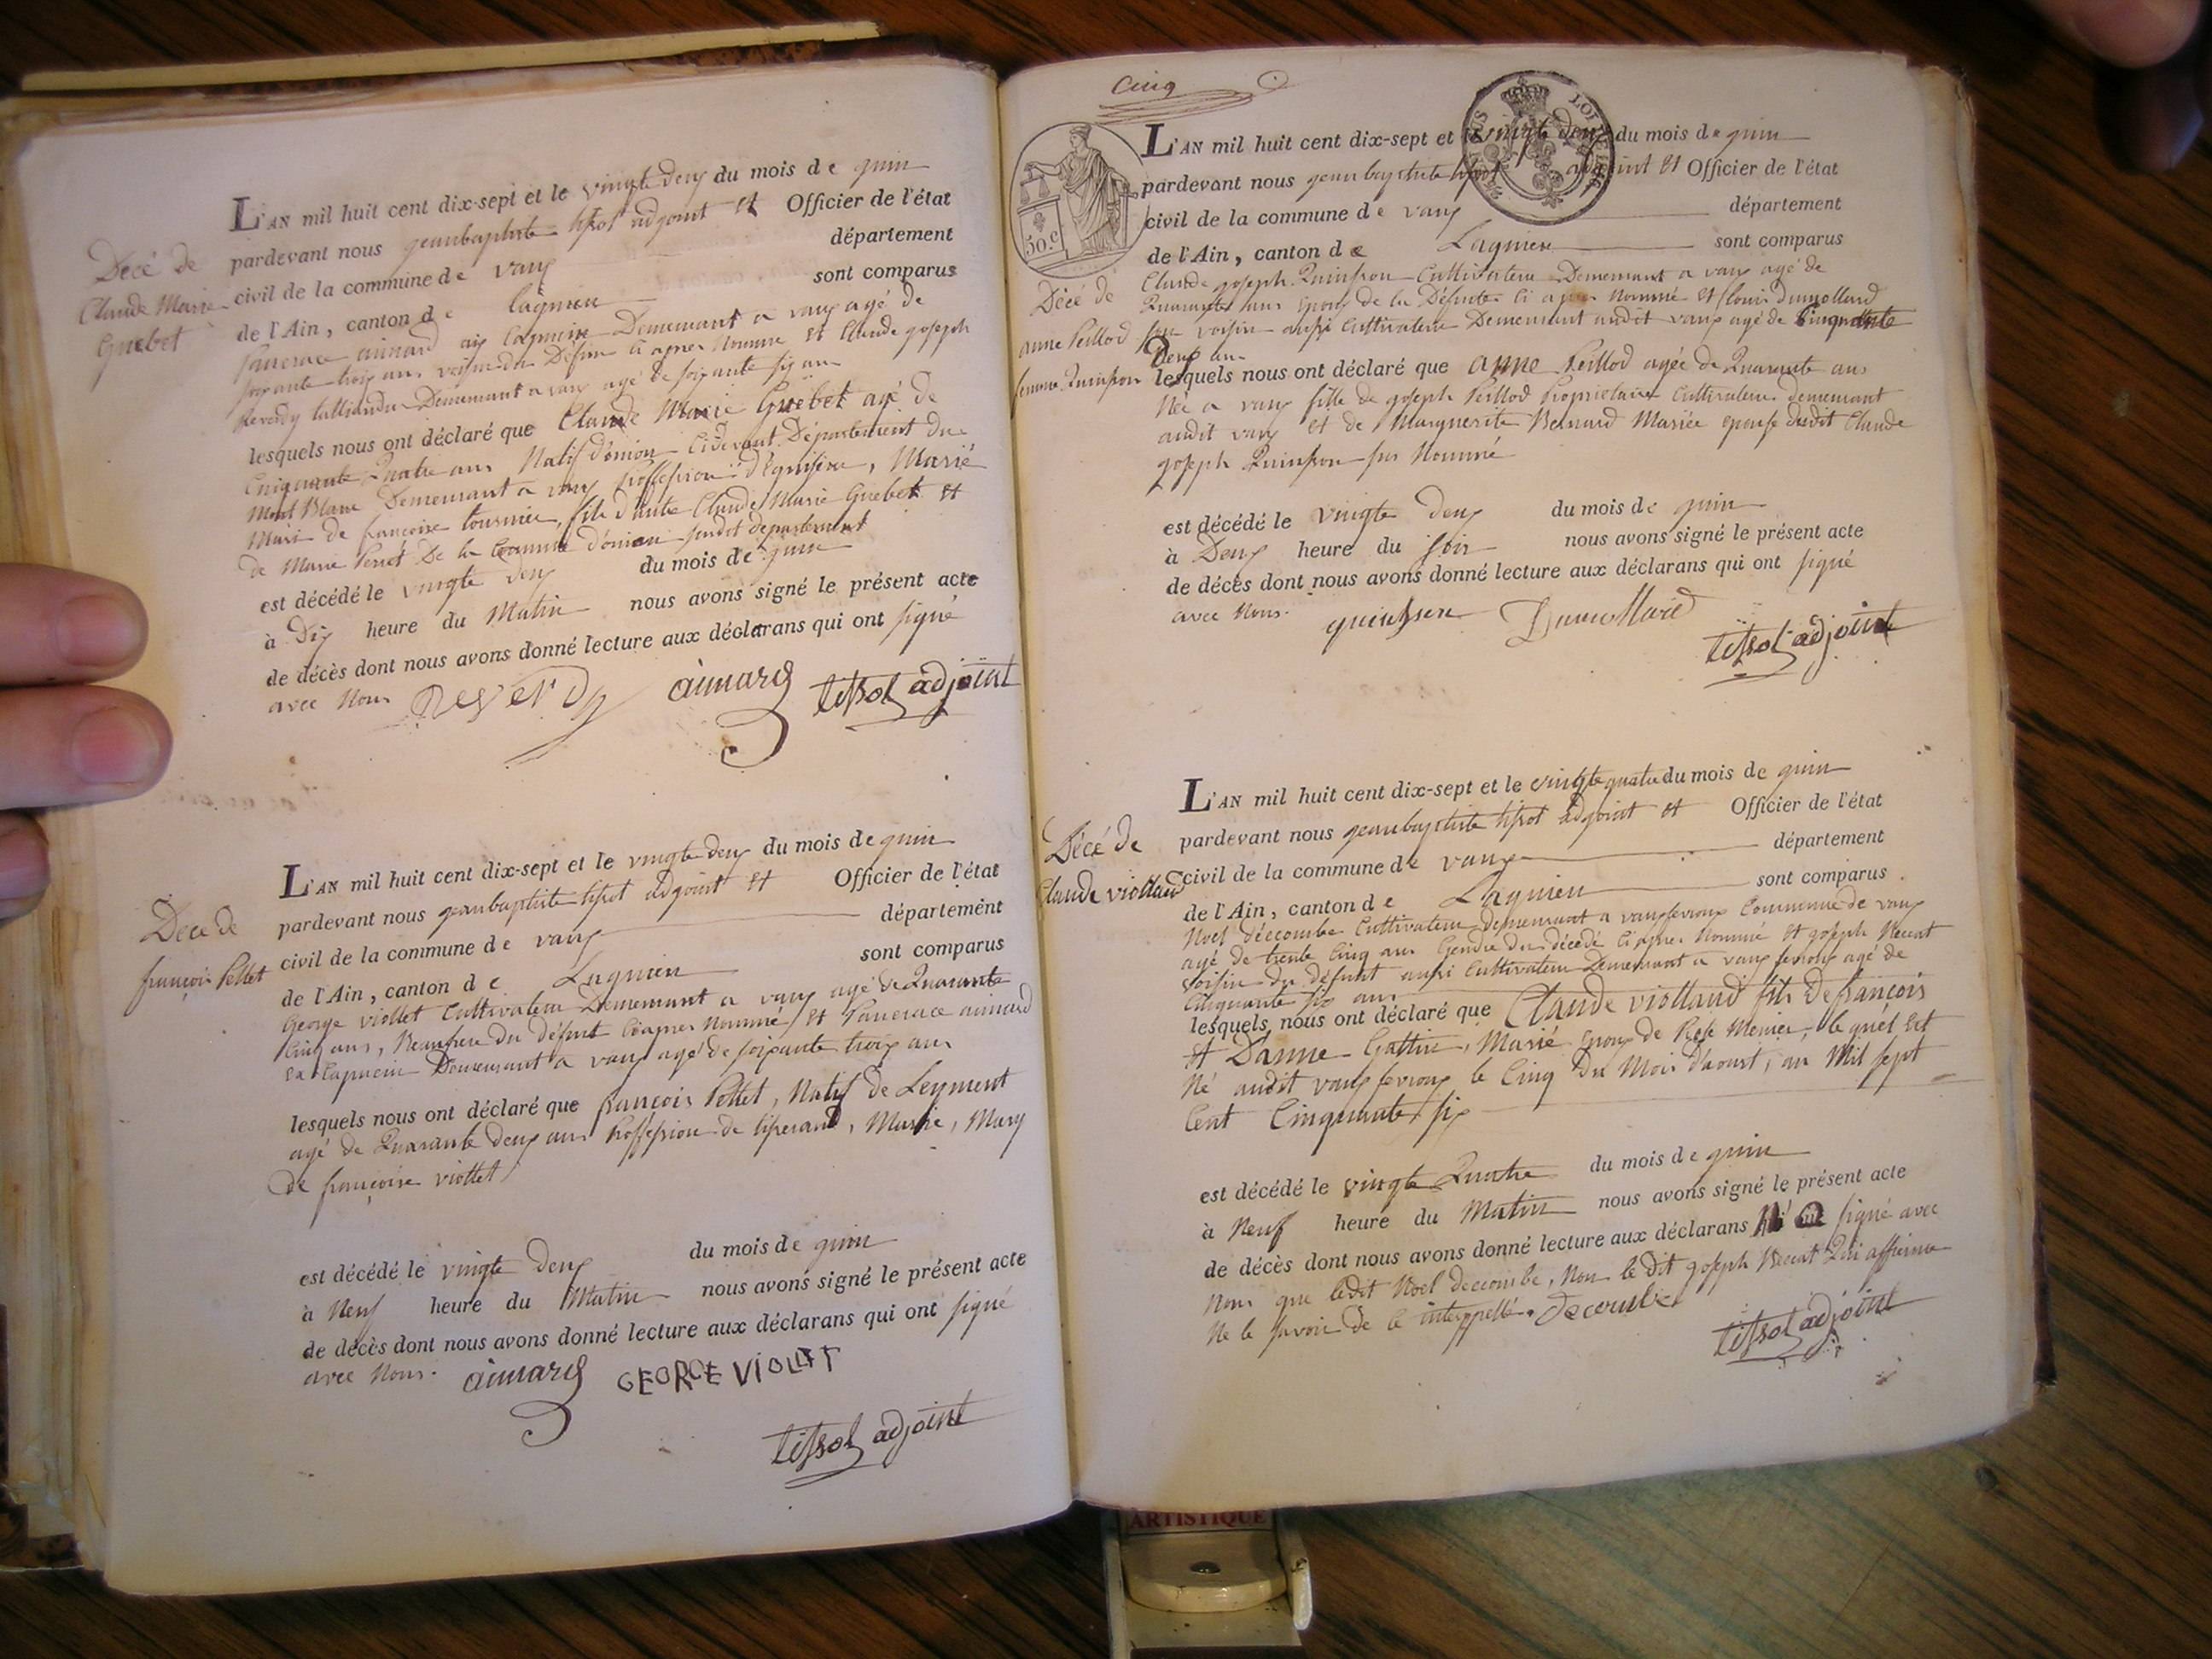 Décé de
Claude Marie
Guebet
L'AN mil huit cent dix-sept et le vingte deux du mois de juin
pardevant nous jeanbaptiste tissot adjoint et Officier de l'état
civil de la commune de vaux département
de l'Ain, canton de lagnieu sont comparus
pancrace aimard ex capucin Demeurant a vaux agé de
soixante trois ans, voisin du Défunt ci apres Nommé et Claude joseph
Reverdy Demeurant a vaux agé de soixante six ans
lesquels nous ont déclaré que Claude Marie Guebet agé de
Cinquante Quatre ans Natif d'onion Cidevant Département du
Mont Blanc Demeurant a vaux Proffession d'Eguiseur, Marié
Mari de françoise tournier, fils d'autre Claude Marie Guebet et
de Marie Perret De la Commune d'onion susdit departement
est décédé le vingte deux du mois de juin
à Dix heure du Matin nous avons signé le présent acte
de décès dont nous avons donné lecture aux déclarans qui ont signé
avec Nous Reverdy aimard tissot adjoint
Décé de
françois Pellet
L'AN mil huit cent dix-sept et le vingte deux du mois de juin
pardevant nous jeanbaptiste tissot adjoint et Officier de l'état
civil de la commune de vaux département
de l'Ain, canton de Lagnieu sont comparus
George viollet Cultivateur Demeurant a vaux agé de Quarante
Cinq ans, Beaufrere du défunt Ciapres Nommé, et Pancrace aimard
ex Capucin Demeurant a vaux agé de soixante trois ans
lesquels nous ont déclaré que françois Pellet, Natif de Leyment
agé de Quarante deux ans Proffession de tisserand, Marié, Mary
de françoise viollet
est décédé le vingte deux du mois de juin
à Neuf heure du Matin nous avons signé le présent acte
de décès dont nous avons donné lecture aux déclarans qui ont signé
avec Nous. aimard GEORGE VIOLLET
tissot adjoint
Cinq
LOUIS
50.c
Décé de
anne Peillod
femme Quinson
L'AN mil huit cent dix-sept et le vingte deux du mois de juin
pardevant nous jeanbaptiste tissot adjoint et Officier de l'état
civil de la commune de vaux département
de l'Ain, canton de Lagnieu sont comparus
Claude joseph Quinson Cultivateur Demeurant a vaux agé de
Quarante ans Epoux de la Défunte Ci apres Nommé et louis dumollard
son voisin aussi Cultivateur Demeurant audit vaux agé de Cinquante
Deux ans
lesquels nous ont déclaré que anne Peillod agée de Quarante ans
Née a vaux fille de joseph Peillod Propriétaire Cultivateur demeurant
audit vaux et de Marguerite Bernard Mariée epouse dudit Claude
joseph Quinson sus Nommé
est décédé le vingte deux du mois de juin
à Deux heure du soir nous avons signé le présent acte
de décès dont nous avons donné lecture aux déclarans qui ont signé
avec Nous. quinson Dumollard
tissot adjoint
Décé de
Claude viollaud
L'AN mil huit cent dix-sept et le vingte quatre du mois de juin
pardevant nous jeanbaptiste tissot adjoint et Officier de l'état
civil de la commune de vaux département
de l'Ain, canton de Lagnieu sont comparus
Noel déccombe Cultivateur demeurant a vauxfevroux Commune de vaux
agé de trente Cinq ans Gendre du décédé Ciapres Nommé et joseph
voisin du défunt aussi Cultivateur Demeurant a vaux fevroux agé de
Cinquante six ans
lesquels nous ont déclaré que Claude viollaud fils De françois
et D'anne Gattin, Marié Epoux de Rose Menier, lequel est
Né audit vaux fevroux le Cinq du Mois d'aoust, an Mil sept
Cent Cinquante six
est décédé le vingte Quatre du mois de juin
à Neuf heure du Matin nous avons signé le présent acte
de décès dont nous avons donné lecture aux déclarans signé avec
Nous que ledit Noel deccombe, Non le dit joseph Qui affirme
Ne le savoir de ce interppellé. Decombe
tissot adjoint
ARTISTIQUE